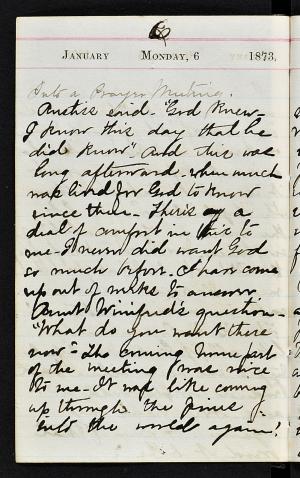 6
January Monday, 6 1873.
Into a Prayer Meeting.
Austin said - "God knew -
I know this day that he
did know". And this was
long afterward - when much
was lived for God to know
since then - There's a
deal of comfort in this to
me - I never did want God
so much before - I have come
up out of to answer,
Aunt Winifred's question -
"What do you want there
now" - The coming home part
of the meeting was nice
to me - It was like coming
up through the
into the world again!